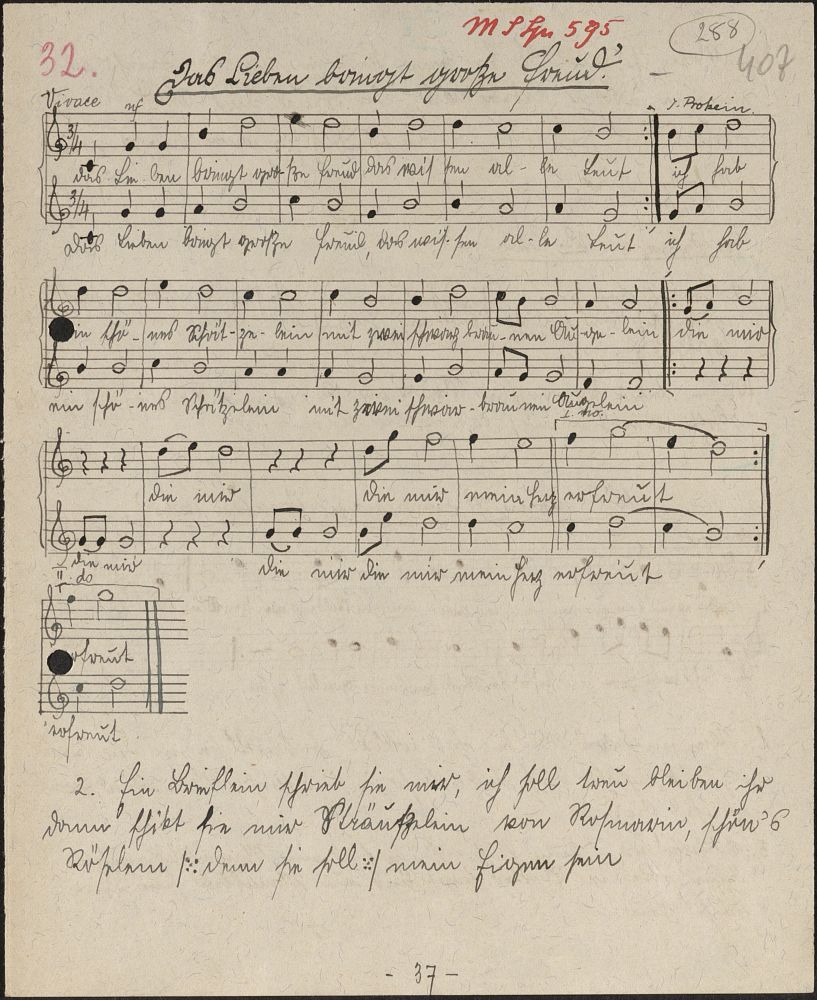 M S Lgn 595
288
32.
Das Lieben bringt große Freud.
407
Vivace mf
J. Prokein.
3/4
das Lie-ben bringt gro-ße Freud das wis sen al - le Leut ich hab
3/4
das Lieben bringt große Freud, das wis-sen al-le Leut ich hab
ein schö - nes Schät-ze-lein mit zwei schwarz brau-nen Äu-ge-lein die mir
ein schö-nes Schätzelein mit zwei schwar-braunen Äugelein
I. mo.
die mir die mir mein Herz erfreut
die mir die mir die mir mein Herz erfreut
II. do
erfreut
erfreut
2. Ein Brieflein schrieb sie mir, ich soll treu bleiben ihr
dann schikt sie mir Sträußelein von Rosmarin, schön's
Röselein /:: denn sie soll ::/ mein Eigen sein
- 37 -